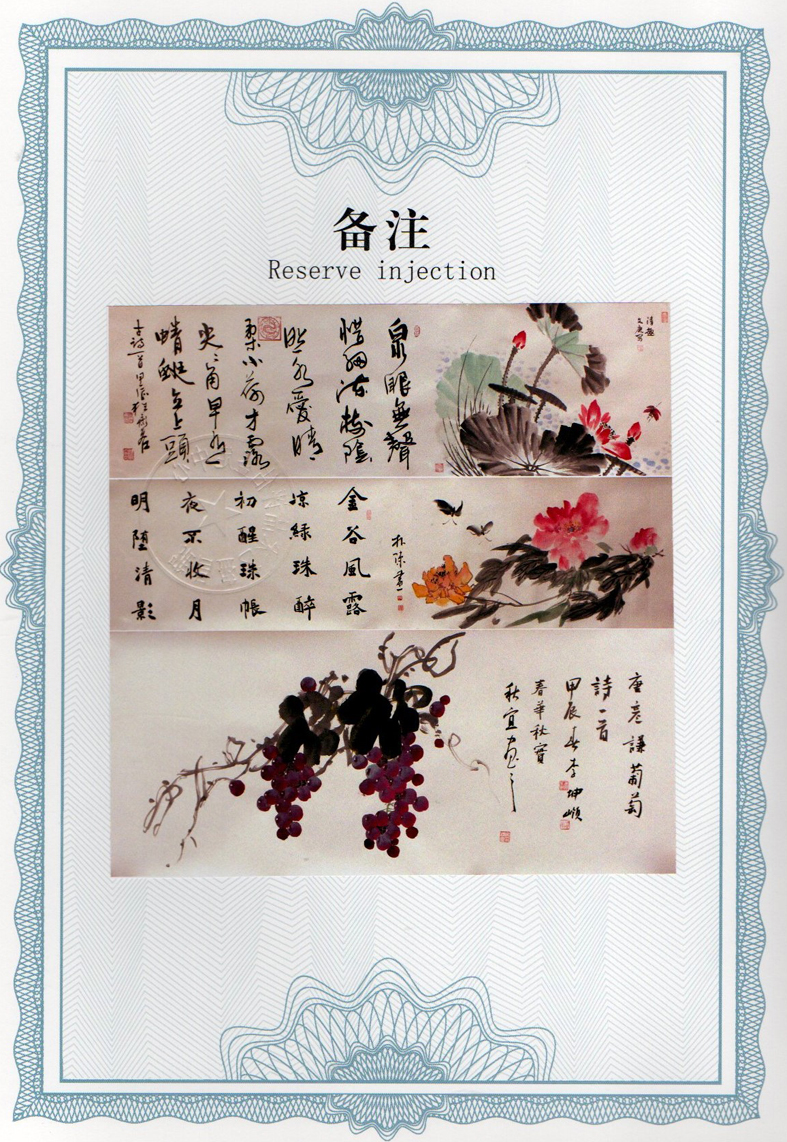 备注
Reserve injection
清趣
泉眼無聲
惜細流樹陰
照水愛晴
柔小荷才露
尖尖角早有
蜻蜓立上頭
金谷風露
涼緑珠醉
初醒珠帳
夜不收月
明墮清影
唐彦謙葡萄
詩一首
甲辰春李坤
春華秋實
秋宜画之